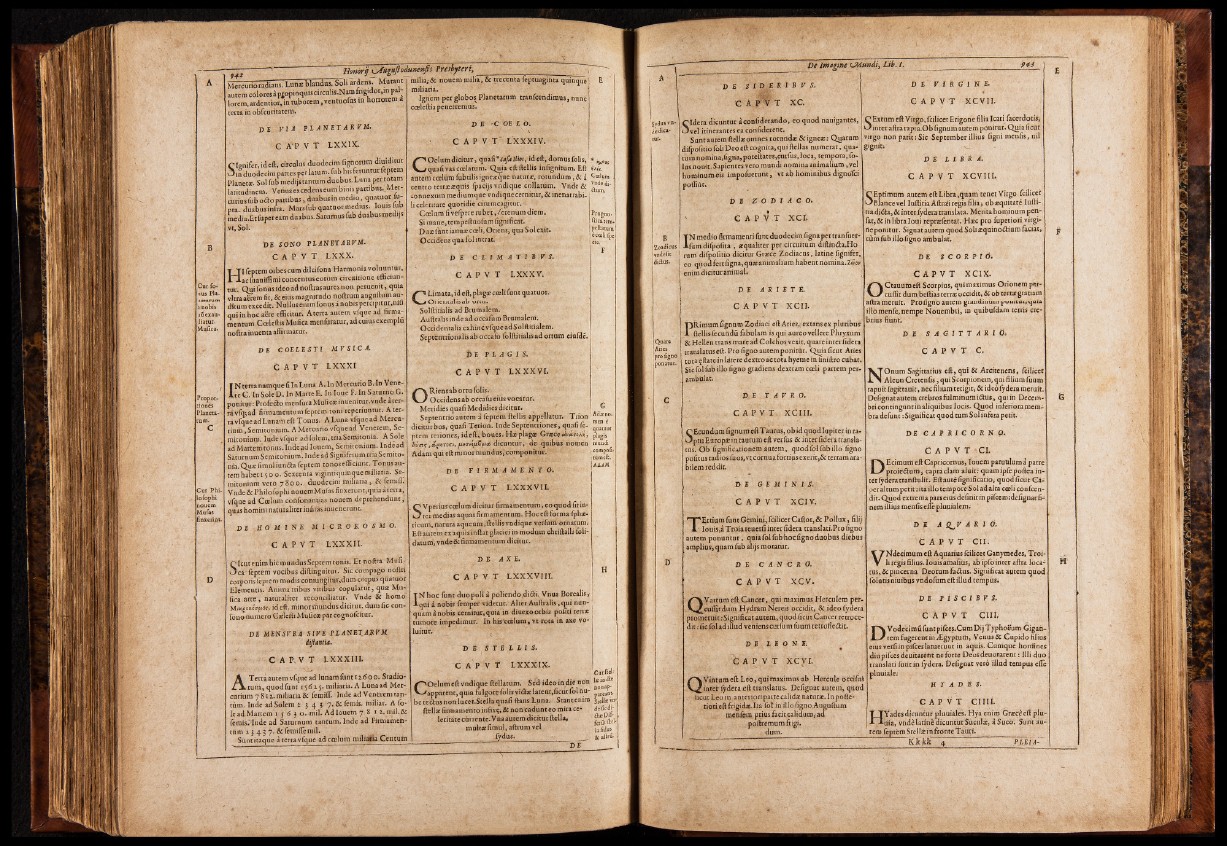 942
Honorij Augustodunensis Presbyteri,
Mercurio radians. Lunæ blandus. Soli ardens. Mutant
autem colores à propinquis circulis. Nam frigidos, in pal-
lorem, ardentior, in ruborem, ventuosus in horrorem à
terra in obscuritatem.
DE VIA PLANETARVM.
CAPVT LXXIX.
SIgnifer, id est, circulus duodecim signorum diuiditur
in duodecim partes per latum, sub his feruntur septem
Planetæ. Sol sub medijs tantum duobus. Luna per totam
latitudinem. Venus excedens eum binis partibus. Mer-
curius sub octo partibus, duabus in medio, quatuor su-
pra, duabus infra. Mars sub quatuor medias. Iouis sub
media. Et super eam duabus. Saturnus sub duabus medijs
vt, Sol.
DE SONO PLANETARVM.
CAPVT LXXX.
HI septem orbes cum dulcisona Harmonia voluuntur,
ac suauissimi concentus eorum circuitione efficiun-
tur. Qui sonus ideo ad nostras aures non peruenit, quia
vltra aërem fit, & eius magnitudo nostrum angustum au-
ditum excedit. Nullus enim sonus à nobis percipitur, nisi
qui in hoc aëre efficitur. A terra autem vsque ad firma-
mentum Cœlestis Musica mensuratur, ad cuius exemplũ
nostra inuenta affirmatur.
DE COELESTI MVSICA.
CAPVT LXXXI
IN terra namque si In Luna A. In Mercurio B. In Vene-
re C. In Sole D. In Marte E. In Ioue F. In Saturno G.
ponitur. Profecto mensura Musicæ inuenitur. vnde à ter-
ra vsque ad firmamentum septem toni reperiuntur. A ter-
ra vsque ad Lunam est Tonus. A Luna vsque ad Mercu-
rium, Semitonium. A Mercurio vsque ad Venerem, Se-
mitonium. Inde vsque ad solem, tria Semitonia. A Sole
ad Martem tonus. Inde ad Iouem, Semitonium. Inde ad
Saturnum Semitonium. Inde ad Signiferum tria Semito-
nia. Quæ simul iuncta septem tonos efficiunt. Tonus au-
tem habet 15 00. Sexcenta vigintiquinque miliaria. Se-
mitonium vero 7800. duodecim miliaria, & semiss.
Vnde & Philosophi nouem Musas finxerunt, quia à terra,
vsque ad Cœlum consonantias nouem deprehendunt,
quas homini naturaliter insitas inuenerunt.
DE HOMINE MICROKOSMO.
CAPVT LXXXII.
SIcut enim hic mundus Septem tonis. Et nostra Musi
ca septem vocibus distinguitur. Sic compago nostri
corporis septem modis coniungitur, dum corpus quatuor
Elementis. Anima tribus viribus copulatur, quæ Mu-
sica arte, naturaliter reconciliatur. Vnde & homo
id est, minor mundus dicitur, dum sic con-
sono numero Cælesti Musicæ par cognoscitur.
DE MENSVRA SIVE PLANETARVM
distantia.
CAPVT LXXXIII.
A Terra autem vsque ad lunam sunt 12600. Stadio-
rum, quod sunt 15625. miliaria. A Luna ad Mer-
curium 7812. miliaria & semiss. Inde ad Venerem tan-
tum. Inde ad Solem 23437. & semis. miliar. A so-
le ad Martem 15630. mil. Ad Iouem 7812. mil. &
semis. Inde ad Saturnum tantum. Inde ad Firmamen-
tum 23437. & semisse mil.
Sunt itaque à terra vsque ad cœlum miliaria Centum
A
B
C
D
Musica.
Propor-
tiones
Planeta-
rum.
Cur Phi-
losophi
nouem
Musas
finxerint.
milia, & nouem milia, & trecenta septuaginta quinque
miliaria.
Ignem per globos Planetarum transcendimus, nunc
cœlestia penetremus.
DE COELO.
CAPVT LXXXIV.
COelum dicitur, quasi casa ilios, id est, domus solis,
quasi vas cælatum. Quia est stellis insignitum. Est
autem cœlum subtilis igneæque naturæ, rotundum, & à
centro terræ æquis spacijs vndique collatum. Vnde &
conuexum mediumque vndique cernitur, & inenarrabi-
li celeritate quotidie circumagitur.
Cœlum si vespere rubet, serenum diem.
Si mane, tempestuosam significat.
Duæ sunt ianuæ cœli, Oriens, qua Sol exit.
Occidens qua sol intrat.
DE CLIMATIBVS.
CAPVT LXXXV.
CLimata, id est, plagæ cœli sunt quatuor.
Orientalis ab ortu
Solstitialis ad Brumalem.
Australis inde ad occasum Brumalem.
Occidentalis exhinc vsque ad Solstitialem.
Septentrionalis ab occasu solstitiali ad ortum eiusdẽ.
DE PLAGIS.
CAPVT LXXXVI.
ORiens ab ortu solis.
Occidens ab occasu eius vocatur.
Meridies quasi Medidies dicitur.
Septentrio autem à septem stellis appellatur. Trion
dicitur bos, quasi Terion. Inde Septentriones, quasi se-
ptem teriones, id est, boues. Hæ plagæ Græce
dicuntur, de quibus nomen
Adam qui est minor mundus, componitur.
DE FIRMAMENTO.
CAPVT LXXXVII.
SVperius cœlum dicitur firmamentum, eo quod sit in-
ter medias aquas firmamentum. Hoc est forma sphæ-
ricum, natura aqueum, stellis vndique versum ornatum.
Est autem ex aquis instar glaciei in modum christalli soli-
datum, vnde & firmamentum dicitur.
DE AXE.
CAPVT LXXXVIII.
IN hoc sunt duo poli à poliendo dicti. Vnus Borealis,
qui à nobis semper videtur. Alter Australis, qui nun-
quam à nobis cernitur, quia in diuexo orbis positi terræ
tumore impedimur. In his cœlum, vt rota in axe vo-
luitur.
DE STELLIS.
CAPVT LXXXIX.
COelum est vndique stellatum. Sed ideo in die non
apparent, quia fulgore solis victæ latent, sicut sol nu-
be tectus non lucet. Stella quasi stans Luna. Stant enim
stellæ firmamento infixæ, & non cadunt eo mira ce-
leritate currente. Vna autem dicitur stella,
multæ simul, astrum vel
sydus.
E
F
G
H
ADAM.
DE
De Imagine Mundi, Lib. I.
943
DE SIDERIBVS.
CAPVT XC.
SIdera dicuntur à considerando, eo quod nauigantes,
vel itinerantes ea considerent.
Sunt autem stellæ omnes rotundæ & igneæ: Quarum
dispositio soli Deo est cognita, qui stellas numerat, qua-
rum nomina, signa, potestates, cursus, loca, tempora, so-
lus nouit. Sapientes vero mundi nomina animalium, vel
hominum eis imposuerunt, vt ab hominibus dignosci
possint.
DE ZODIACO.
CAPVT XCI.
IN medio firmamenti sunt duodecim signa per transuer-
sum disposita, æqualiter per circuitum distincta. Ho
rum dispositio dicitur Græce Zodiacus, latine signifer,
eo quod fert signa, quæ animalium habent nomina.
enim dicitur animal.
DE ARIETE.
CAPVT XCII.
PRimum signum Zodiaci est Aries, extans ex pluribus
stellis secundũ fabulam is qui aureo vellere Phryxum
& Hellen trans mare ad Colchos vexit, quare inter sidera
translatus est. Pro signo autem ponitur. Quia sicut Aries
tota æstate in latere dextro ac tota hyeme in sinistro cubat.
Sic sol sub illo signo gradiens dextram cœli partem per-
ambulat.
DE TAVRO.
CAPVT XCIII.
SEcundum signum est Taurus, ob id quod Iupiter in ra-
ptu Europæ in taurum est versus & inter sidera transla-
tus. Ob significationem autem, quod sol sub illo signo
positus radios suos, vt cornua fortius exerit, & terram ara-
bilem reddit.
DE GEMINIS.
CAPVT XCIV.
TErtium sunt Gemini, scilicet Castor, & Pollux, filij
Iouis, à Troia reuersi inter sidera translati. Pro signo
autem ponuntur, quia sol sub hoc signo duobus diebus
amplius, quam sub alijs moratur.
DE CANCRO.
CAPVT XCV.
QVartum est Cancer, qui maximus Herculem per-
cussit dum Hydram Nereæ occidit, & ideo sydera
promeruit: Significat autem, quod sicut Cancer retroce-
dit: sic sol ad illud veniens cœlum suum retroflectit.
DE LEONE.
CAPVT XCVI.
QVintum est Leo, qui maximus ab Hercule occisus
inter sydera est translatus. Designat autem, quod
sicut Leo in anteriori parte calidæ naturæ. In poste-
riori est frigidæ. Ita sol in illo signo Augustum
mensem prius facit calidum, ad
postremum frigi-
dum.
A
B
C
D
Sydus vn-
Zodiacus
vnde sit
dictus.
Quare
Aries
pro signo
ponatur.
DE VIRGINE.
CAPVT XCVII.
SExtum est Virgo, scilicet Erigone filia Icari sacerdotis,
inter astra rapta. Ob signum autem ponitur. Quia sicut
virgo non parit: Sic September illius signi mensis, nil
gignit.
DE LIBRA.
CAPVT XCVIII.
SEptimum autem est Libra, quam tenet Virgo scilicet
Blance vel Iustitia Astræi regis filia, ob æquitatẽ Iusti-
tia dicta, & inter sydera translata. Merita hominum pen-
sat, & in libra Ioui repræsentat. Hæc pro superiori virgi-
ne ponitur. Signat autem quod Sol æquinoctium faciat,
cum sub illo signo ambulat.
DE SCORPIO.
CAPVT XCIX.
OCtauum est Scorpius, qui maximus Orionem per-
cussit dum bestias terræ occidit, & ob terræ gratiam
astra meruit. Pro signo autem grandinum ponitur, quia
illo mense, nempe Nouembri, in quibusdam terris cre-
brius fiunt.
DE SAGITTARIO.
CAPVT C.
NOnum Sagittarius est, qui & Arcitenens, scilicet
Alcon Cretensis, qui Scorpionem, qui filium suum
rapuit sagittauit, nec filium tetigit, & ideo sydera meruit.
Designat autem crebros fulminum ictus, qui in Decem-
bri contingunt in aliquibus locis. Quod inferiora mem-
bra desunt: Significat quod tum Sol infera petit.
DE CAPRICORNO.
CAPVT CI.
DEcimum est Capricornus, Iouem paruulum à patre
proiectum, capra clam aluit: quam ipse postea in-
ter sydera transtulit. Est autẽ significatio, quod sicut Ca-
per altum petit: ita illo tempore Sol ad alta cœli conscen-
dit. Quod extrema pars eius desinit in piscem: designat fi-
nem illius mensis esse pluuialem.
DE AQVARIO.
CAPVT CII.
VNdecimum est Aquarius scilicet Ganymedes, Troi-
li regis filius. Iouis amasius, ab ipso inter astra loca-
tus, & pincerna Deorum factus. Significat autem quod
solutis nubibus vndosum est illud tempus.
DE PISCIBVS.
CAPVT CIII.
DVodecimũ sunt pisces. Cum Dij Typhœum Gigan-
tem fugerent in Ægyptum, Venus & Cupido filius
eius versi in pisces latuerunt in aquis. Cumque homines
diu pisces deuitarent ne forte Deos deuorarent: Illi duo
translati sunt in sydera. Designat verò illud tempus esse
pluuiale.
HYADES.
CAPVT CIIII.
HYades dicuntur pluuiales. Hya enim Græcè est plu-
uia, vnde latinè dicuntur Suculæ, à Suco. Sunt au-
tem septem Stellæ in fronte Tauri.
E
F
G
H
Kkkk 4
PLEIA-